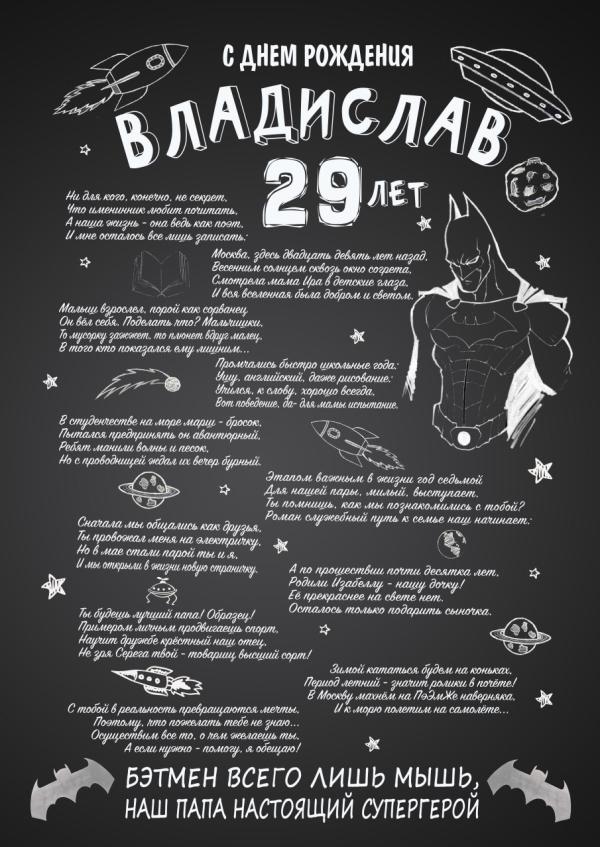 С ДНЕМ РОЖДЕНИЯ
ВЛАДИСЛАВ
29 ЛЕТ
Ни для кого, конечно, не секрет,
Что именинник любит почитать,
А наша жизнь - она ведь как поэт,
И мне осталось все лишь записать:
Москва, здесь двадцать девять лет назад,
Весенним солнцем сквозь окно согрета,
Смотрела мама Ира в детские глаза,
И вся вселенная была добром и светом.
Малыш взрослел, порой как сорванец
Он вёл себя. Поделать что? Мальчишки,
То мусорку зажжет, то плюнет вдруг малец,
В того кто показался ему лишним...
Промчались быстро школьные года:
Ушу, английский, даже рисование:
Учился, к слову, хорошо всегда,
Вот поведение, да- для мамы испытание.
В студенчестве на море марш - бросок,
Пытался предпринять он авантюрный.
Ребят манили волны и песок,
Но с проводницей ждал их вечер бурный.
Этапом важным в жизни год седьмой
Для нашей пары, милый, выступает.
Ты помнишь, как мы познакомились с тобой?
Роман служебный путь к семье наш начинает:
Сначала мы общались как друзья,
Ты провожал меня на электричку.
Но в мае стали парой ты и я,
И мы открыли в жизни новую страничку.
А по прошествии почти десятка лет,
Родили Изабеллу - нашу дочку!
Её прекраснее на свете нет.
Осталось только подарить сыночка.
Ты будешь лучший папа! Образец!
Примером личным продвигаешь спорт,
Научит дружбе крёстный наш отец,
Не зря Серега твой - товарищ высший сорт!
Зимой кататься будем на коньках,
Период летний - значит ролики в почёте!
В Москву махнём на ПэЭмЖе наверняка,
И к морю полетим на самолёте...
С тобой в реальность превращаются мечты,
Поэтому, что пожелать тебе не знаю...
Осуществим все то, о чем желаешь ты,
А если нужно - помогу, я обещаю!
БЭТМЕН ВСЕГО ЛИШЬ МЫШЬ,
НАШ ПАПА НАСТОЯЩИЙ СУПЕРГЕРОЙ